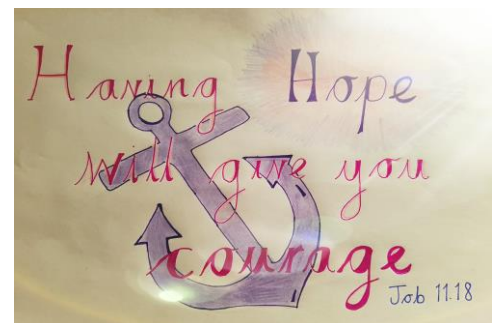 Having Hope
will give you
courage
Job 11.18